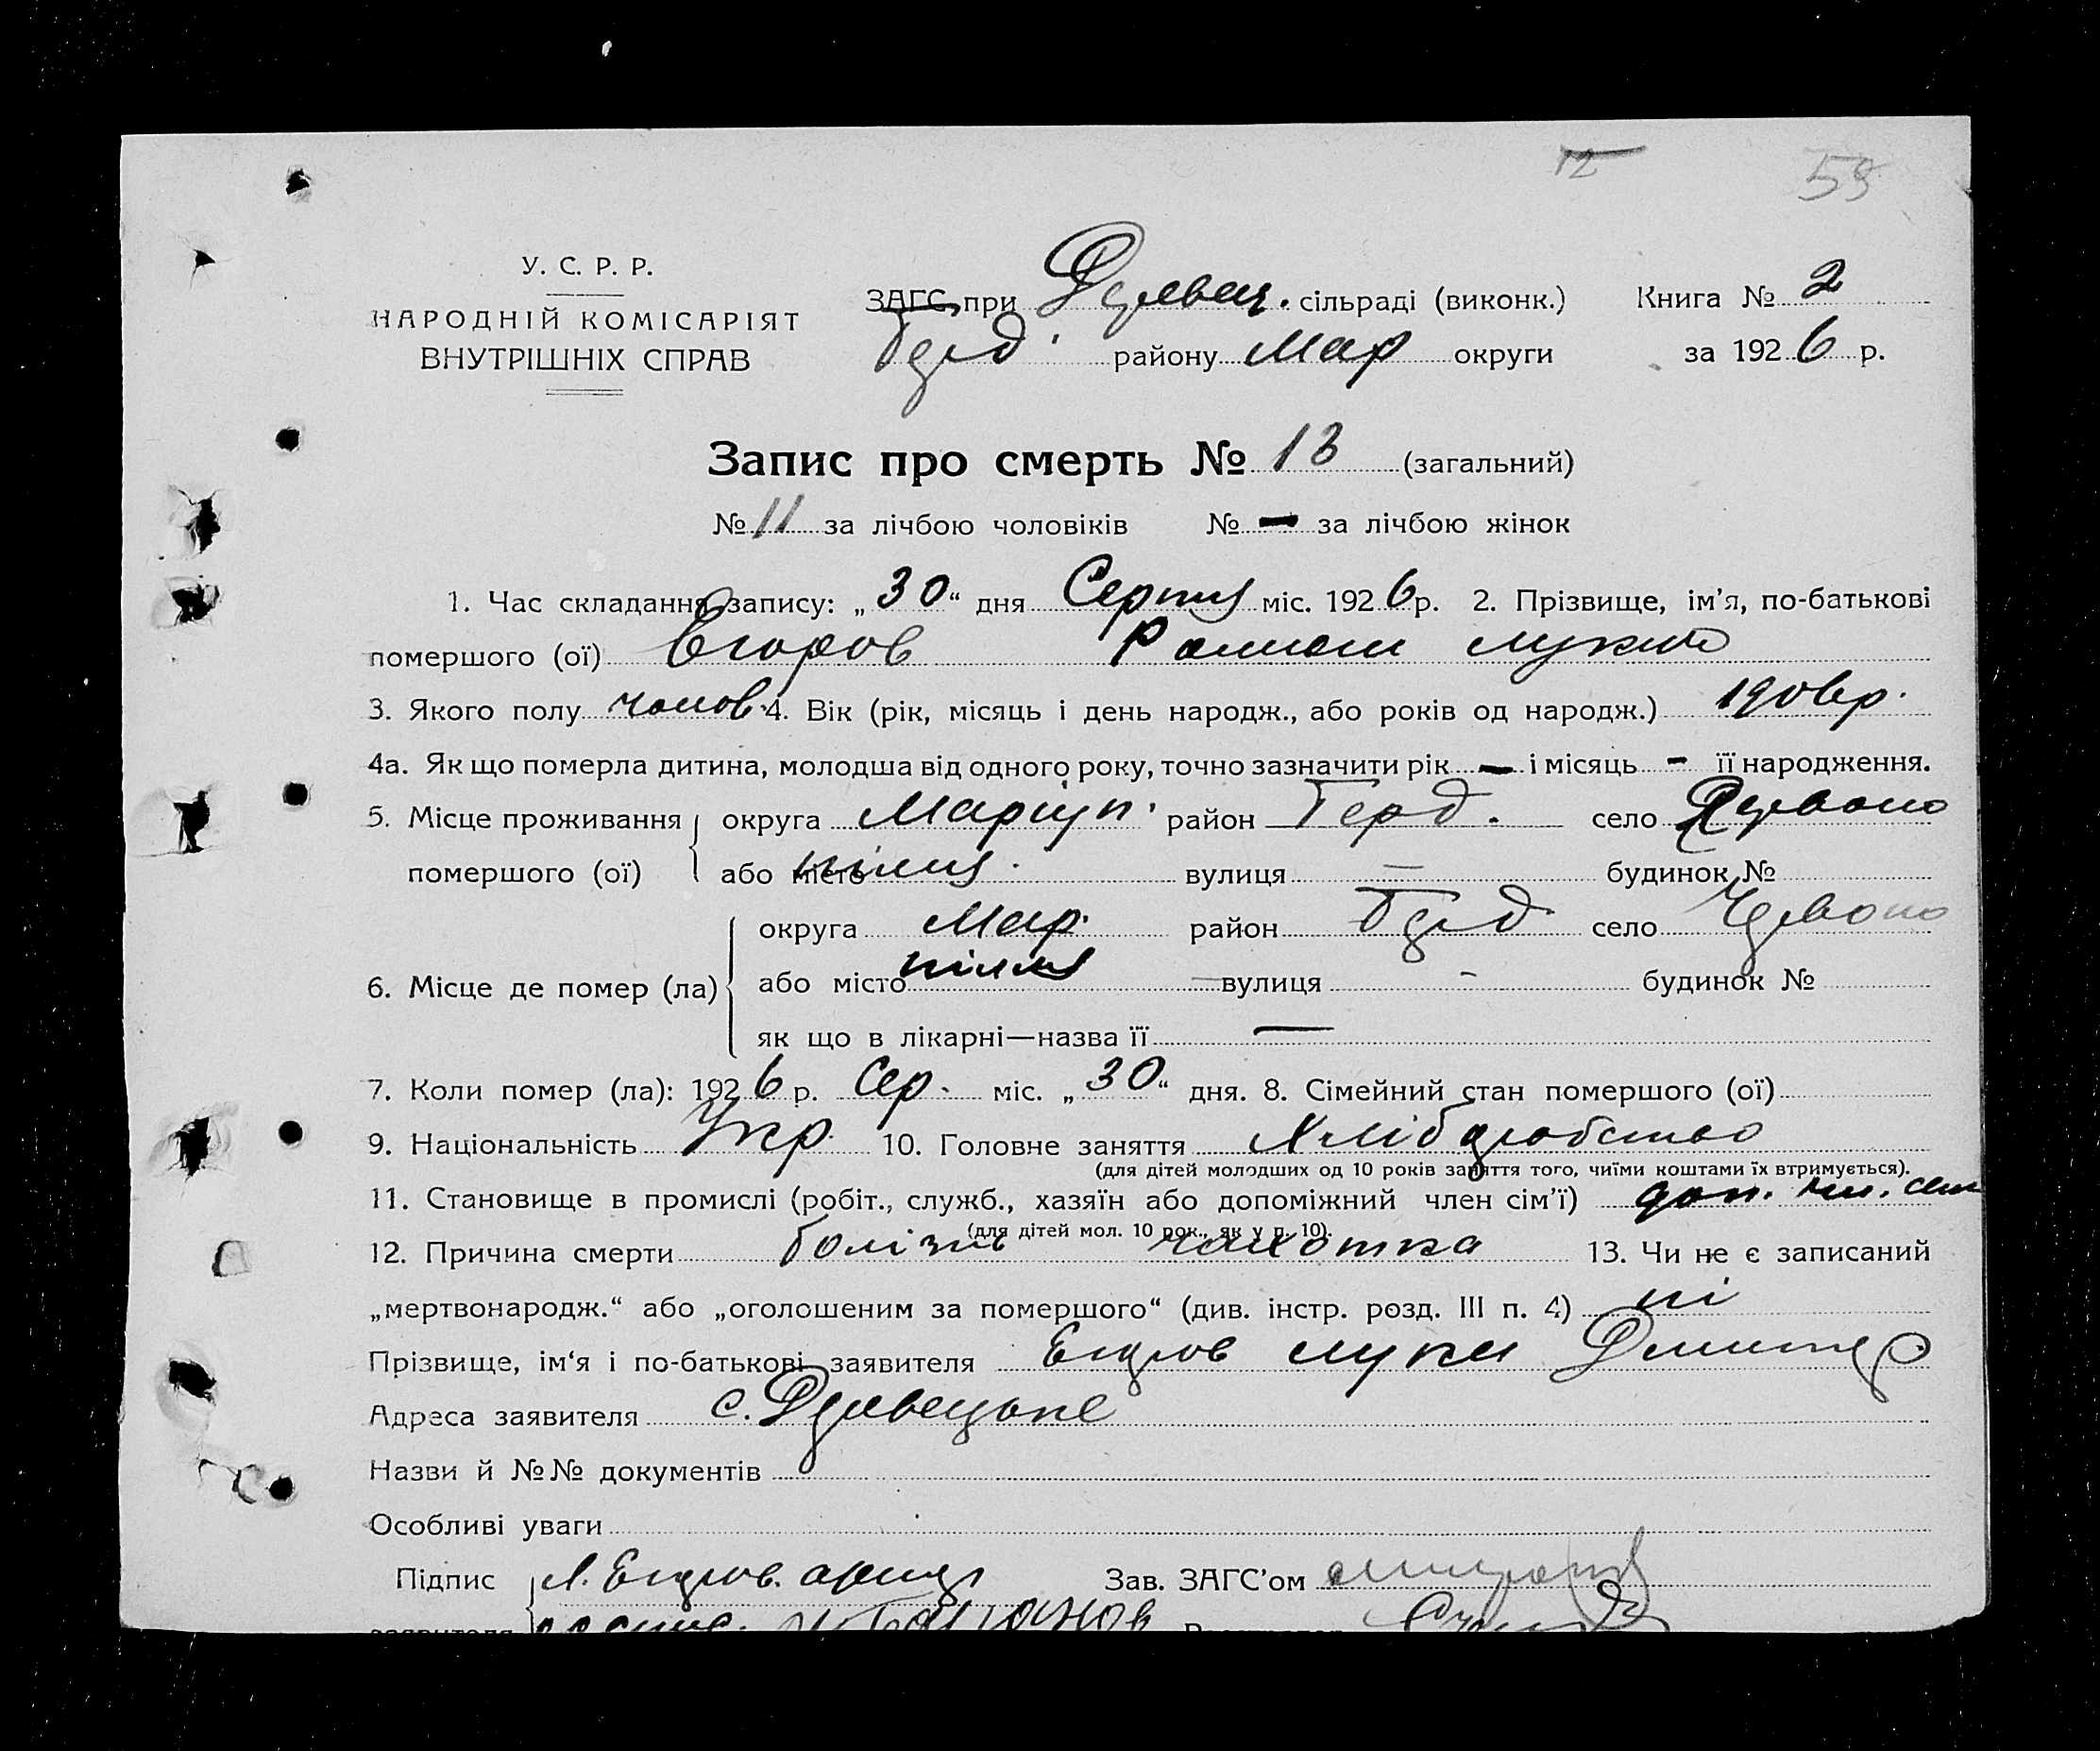 12 59
У. С. Р. Р.
НАРОДНІЙ КОМІСАРІЯТ
ВНУТРІШНІХ СПРАВ
ЗАГС при Деревец. сільраді (виконк.) Книга № 2
Берд. району Мар округи за 1926 р.
Запис про смерть № 13 (загальний)
№ 11 за лічбою чоловіків № - за лічбою жінок
1. Час складання запису: „30“ дня Серпня міс. 1926 р. 2. Прізвище, ім’я, по-батькові
помершого (ої) Єгоров Роман Лукич
3. Якого полу чолов. 4. Вік (рік, місяць і день народж., або років од народж.) 1906 р.
4а. Як що померла дитина, молодша від одного року, точно зазначити рік - і місяць - її народження.
5. Місце проживання округа Маріуп. район Берд. село Червоно
помершого (ої) або місто пілля. вулиця — будинок №
округа Мар. район Берд село Червоно
6. Місце де помер (ла) або місто пілля вулиця - будинок №
як що в лікарні—назва її —
7. Коли помер (ла): 1926 р. Сер. міс. „30“ дня. 8. Сімейний стан помершого (ої)
9. Національність Укр. 10. Головне заняття Хліборобство
(для дітей молодших од 10 років заняття того, чиїми коштами їх втримується).
11. Становище в промислі (робіт., служб., хазяїн або допоміжний член сім’ї) доп. чл. сем
(для дітей мол. 10 рок., як у п. 10).
12. Причина смерти болізнь чахотка 13. Чи не є записаний
„мертвонародж.“ або „оголошеним за помершого“ (див. інстр. розд. III п. 4) ні
Прізвище, ім‘я і по-батькові заявителя Егоров Лука Дмитр
Адреса заявителя с.
Назви й №№ документів
Особливі уваги
Підпис Л. Егоров. Зав. ЗАГС’ом
заявителя